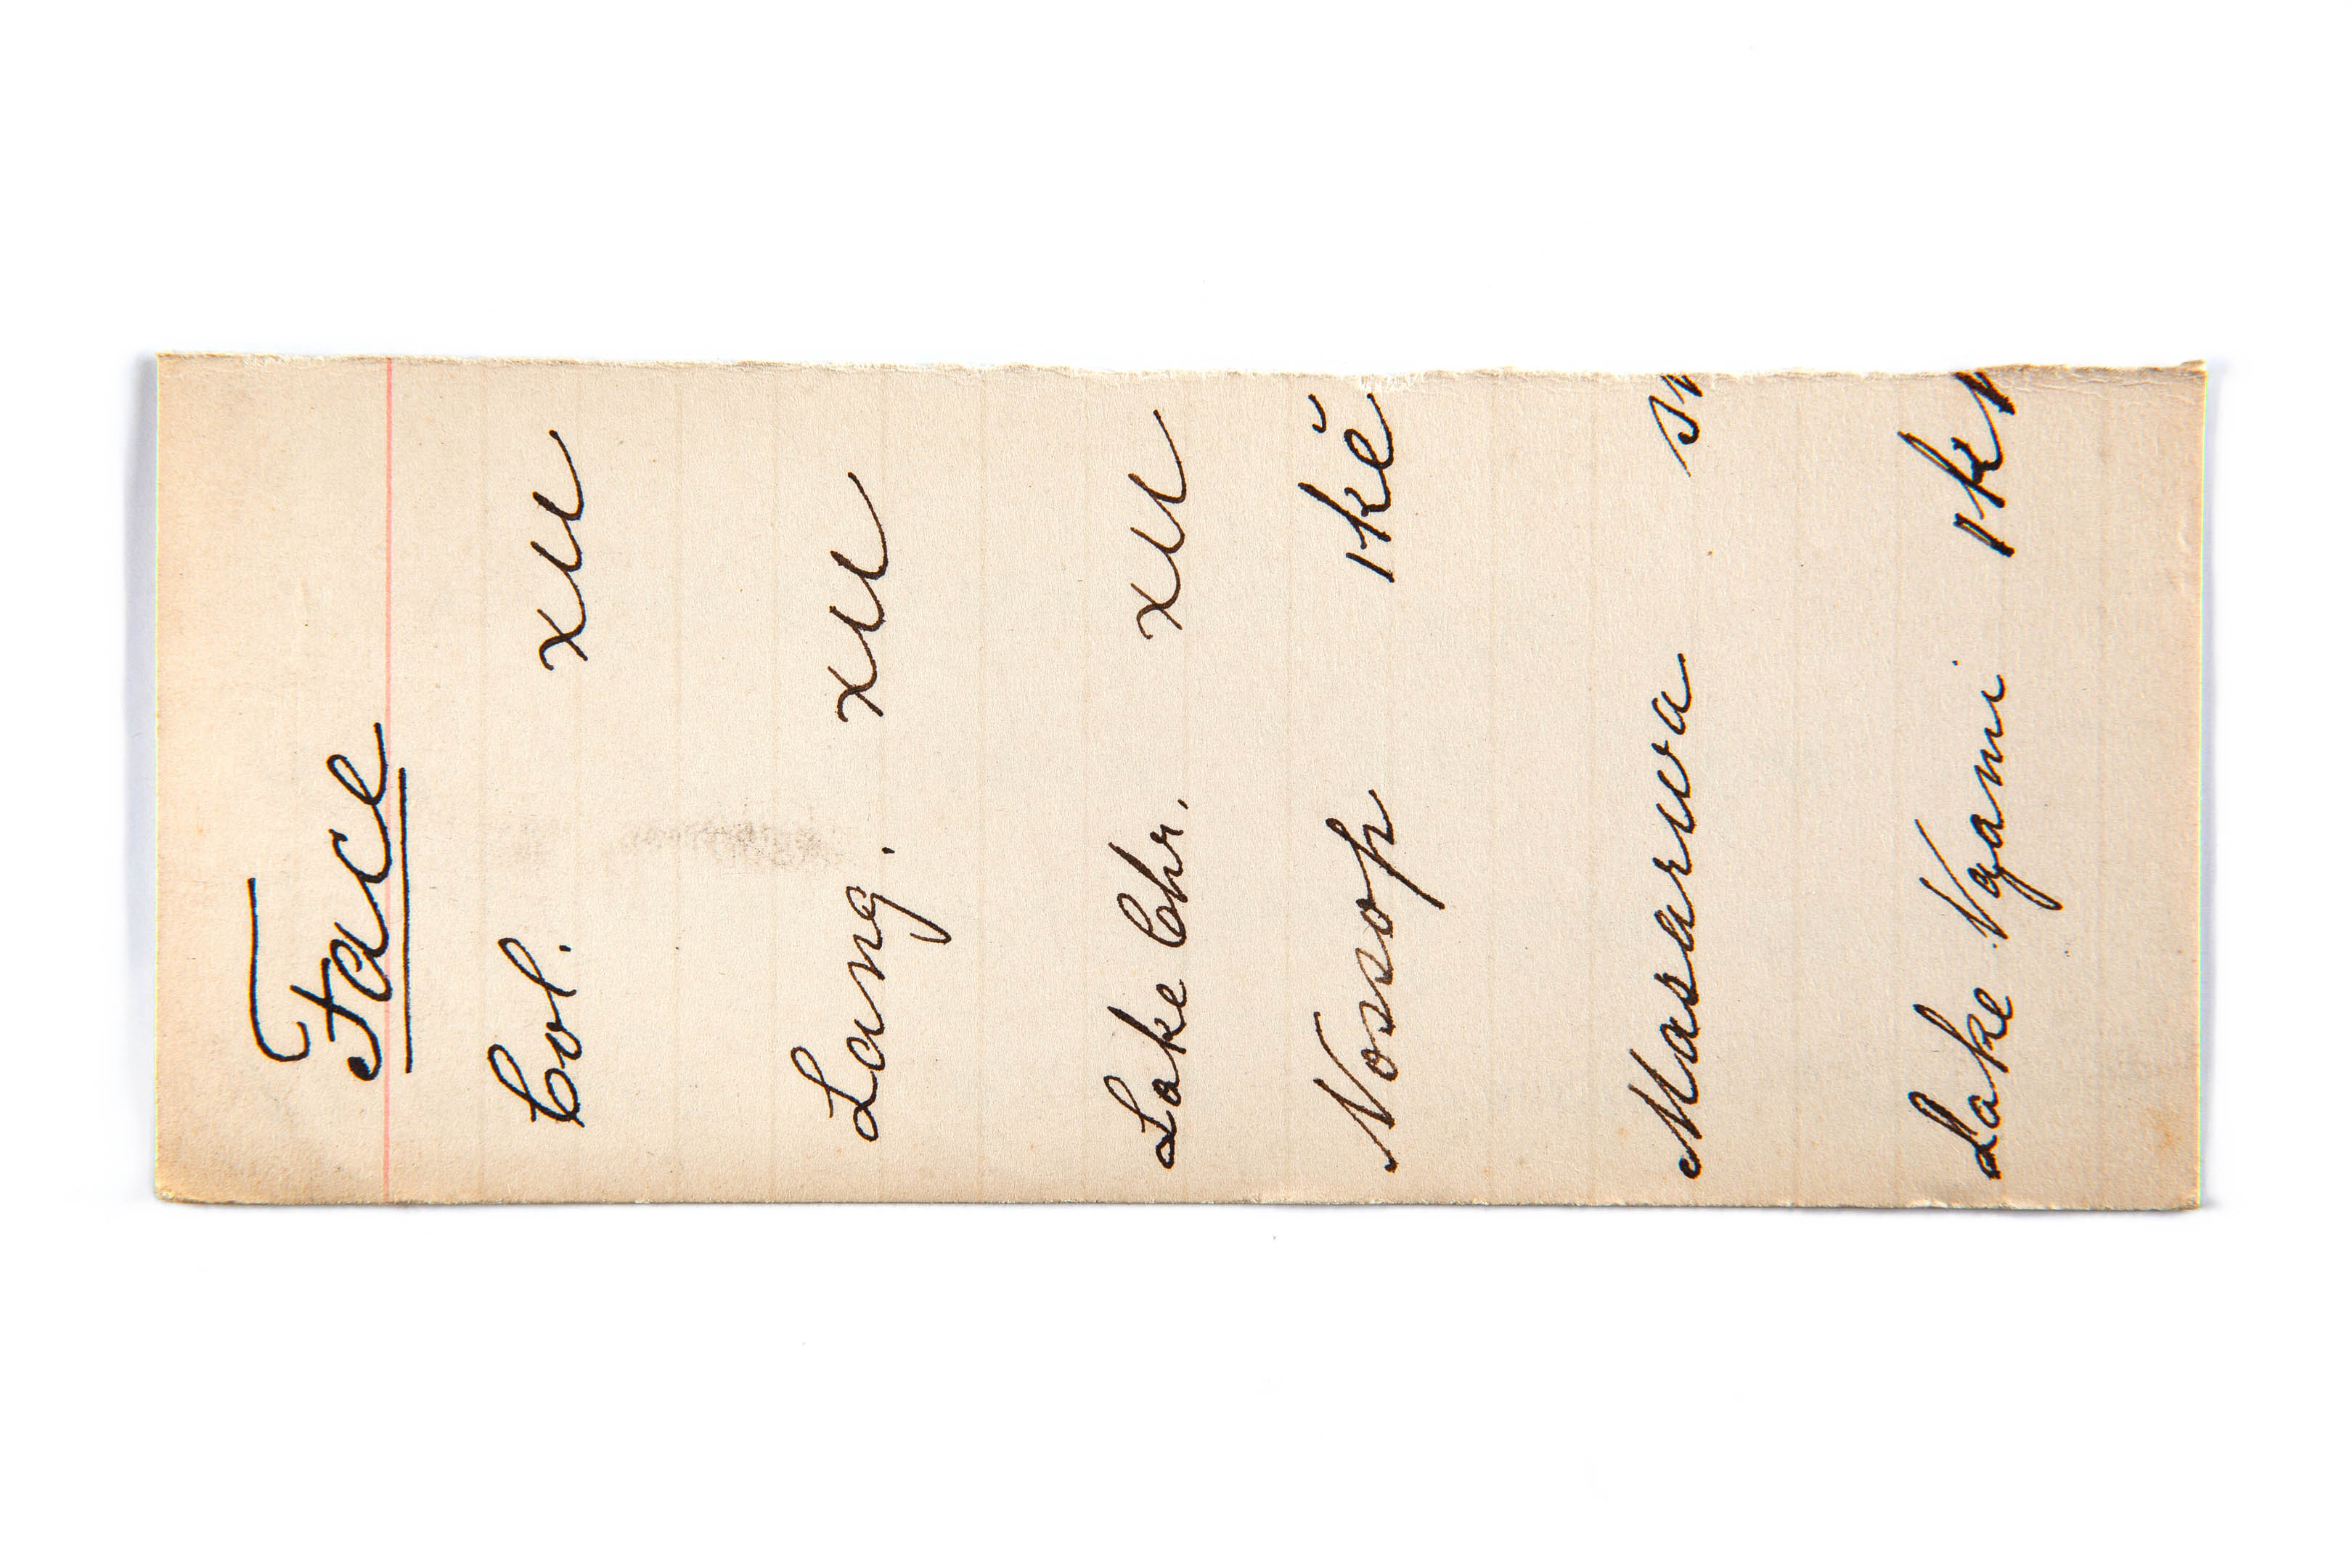 Face
Col. xu
Lang. xu
Lake Chr. xu
Nossop ıkĕ
Masarwa
Lake Ngami